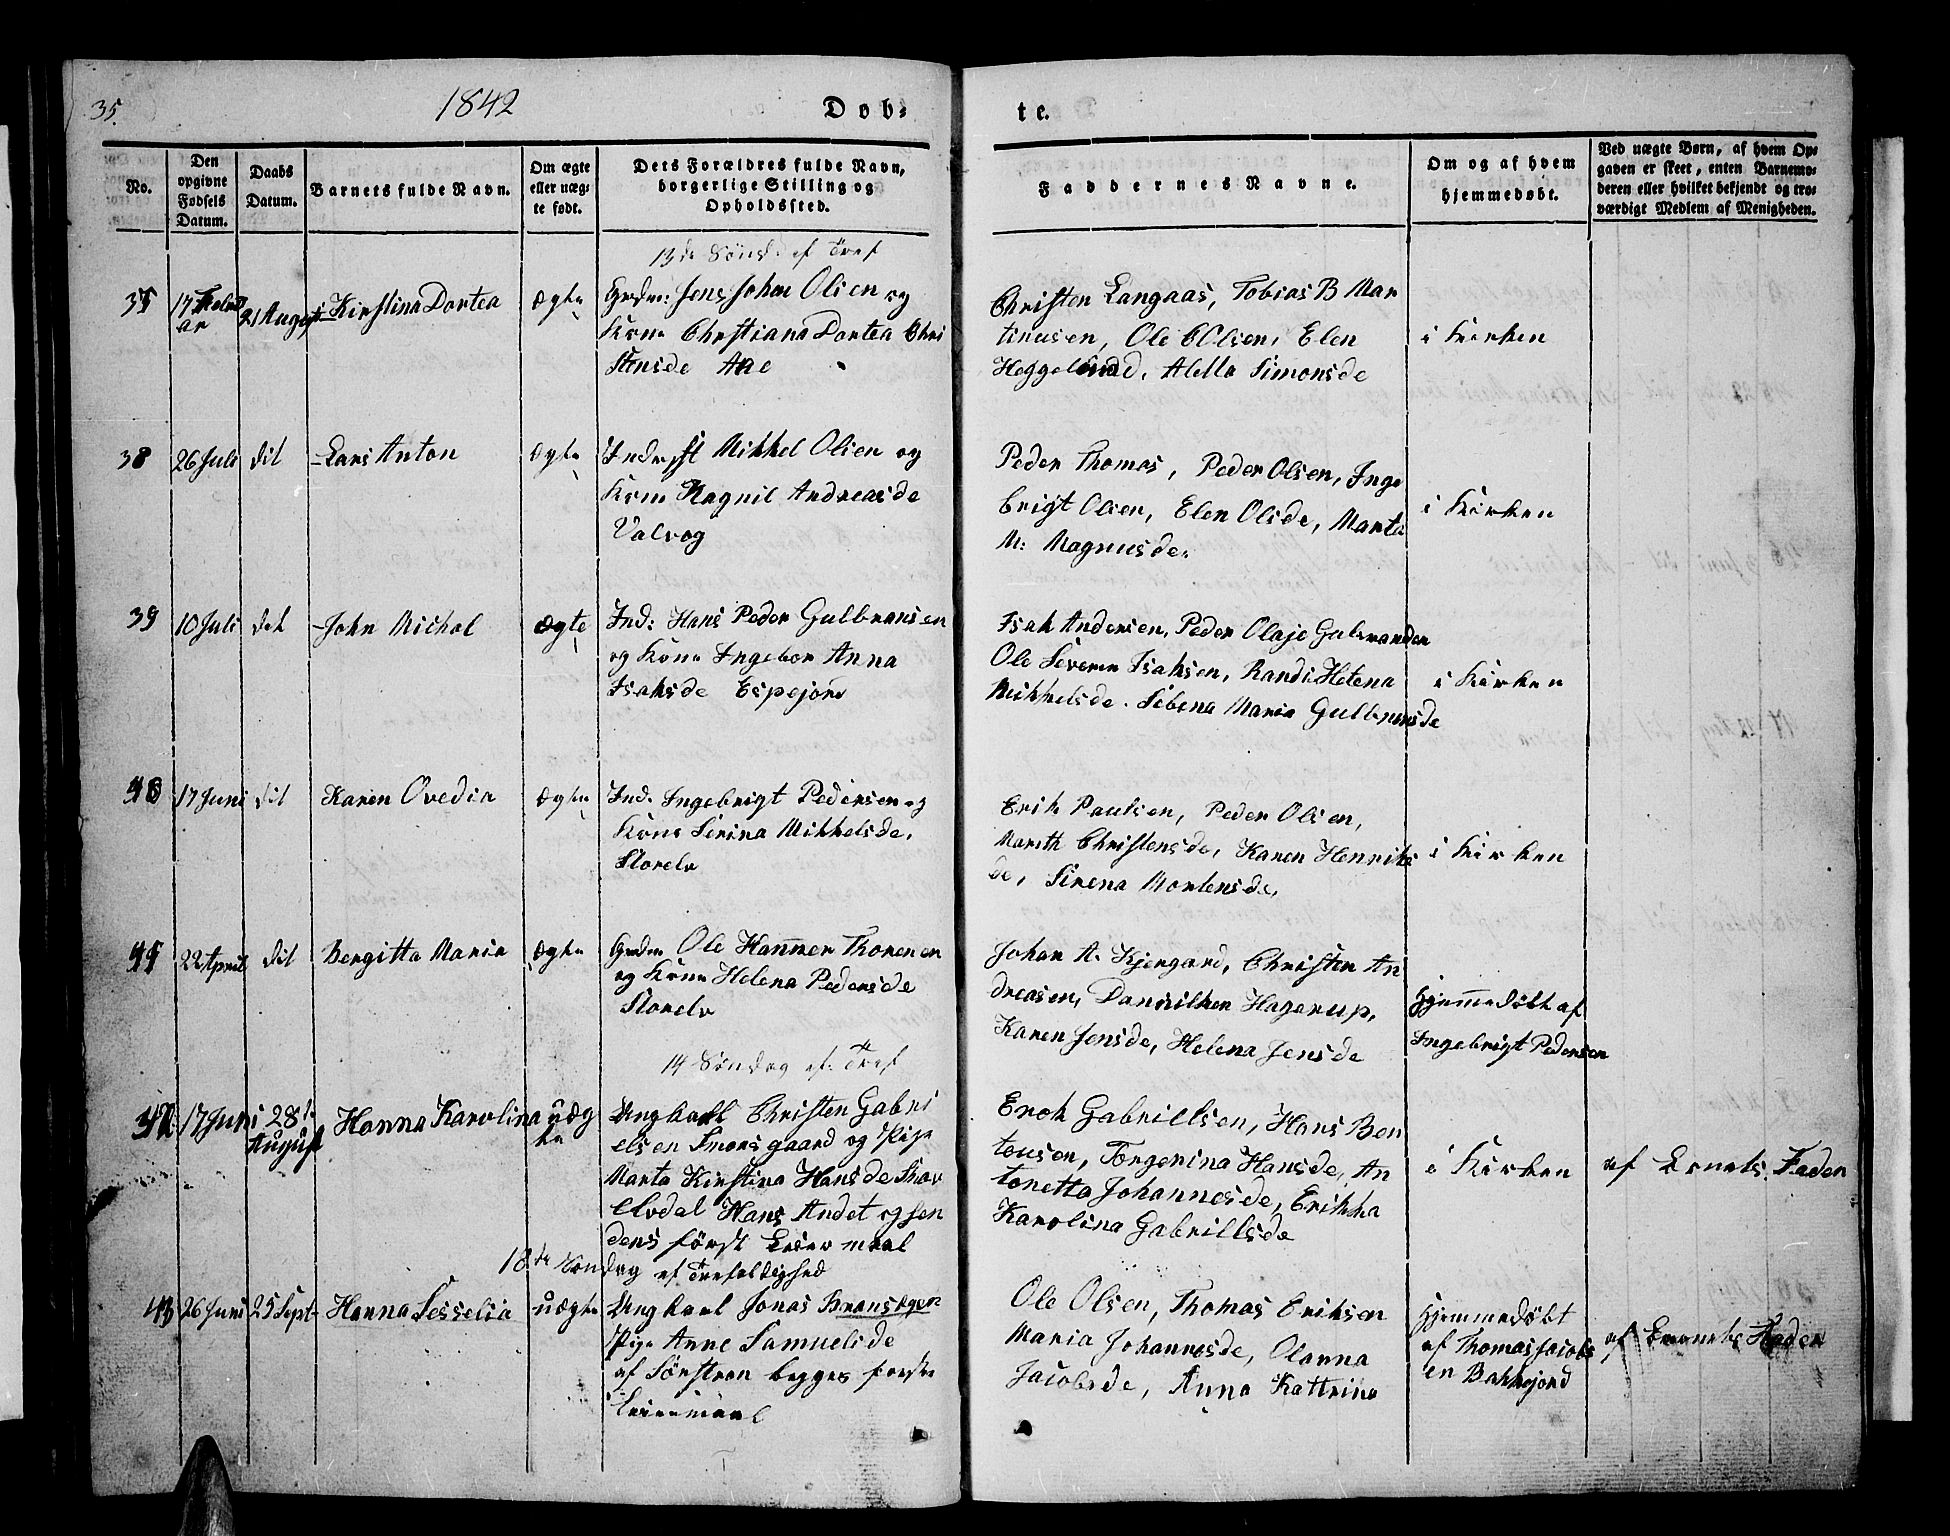 35.
1842
Døb-
te.
No.
Den opgivne Fødsels Datum.
Daabs Datum.
Barnets fulde Navn.
Om ægte eller uægte født.
Dets Forældres fulde Navn, borgerlige Stilling og Opholdssted.
Faddernes Navne.
Om og af hvem hjemmedøbt.
Ved uægte Børn, af hvem Opgaven er skeet, enten Barnemoderen eller hvilket bekjendt og troværdigt Medlem af Menigheden.
13de Sønd: ef Tref
21 August Kirstina Dortea ægte
Jens Johan Olsen og
Kone Christiana Dortea Chri
stensde Ane
Christen Langaas, Tobias B Mar
tinusen, Ole C Olsen, Elen
Heggelund, Aletta Simonsde
i Kirken
38 26 Juli dit Lars Anton ægte
Mikkel Olsen og
Kone Ragnil Andreasde
Valvog
Peder Thomas, Peder Olsen, Inge
brigt Olsen, Elen Olsde, Marta
M: Magnusde.
i Kirken
39 10 Juli dit John Michal ægte
Ind: Hans Peder Gulbransen
og Kone Ingebor Anna
Isaksde Espejord
Isak Andersen, Peder Olaje
Ole Severen Isaksen, Randi Helena
Mikkelsde. Maria
i Kirken
40 17 Juni dit Karen Ovedia ægte
Ind. Ingebrigt Pedersen og
Kone Serina Mikkelsde,
Storelv
Erik Paulsen, Peder Olsen,
Marith Christensde, Karen Henriks
de, Sirena Mortensde,
i Kirken
41 22 April dit Bergitta Maria ægte
Ole Hammer
og Kone Helena Pedersde
Storelv
Johan A. Kjergard, Christen An
dreasen, Hagerup,
Karen Jensde, Helena Jensde
Hjemmedøbt af
Ingebrigt Pedersen
14 Søndag ef: Tref
42 17 Juni 28 August Hanna Karolina uæg
te
Ungkarl Christen Gabri
elsen og Pige
Marta Kirstina Hansde
Hans Andet og hen
dens først Leier maal
Enok Gabrielsen, Hans Ben
tousen, Torgerina Hansde, An
tonetta Johannesde, Erikka
Karolina Gabrillsde
i Kirken
af Fader
18de Søndag ef Trefoldighed
43 26 Juni 25 Sept Hanna Sesselia uægte
Ungkarl Jonas
Pige Anne Samuelsde
af begges første
Leiermaal
Ole Olsen, Thomas Eriksen
Maria Johannesde, Olanna
Jacobsde, Anna Kattrina
Hjemmedøbt
af Thomas Jacobs
en Bakkejord
af Fader